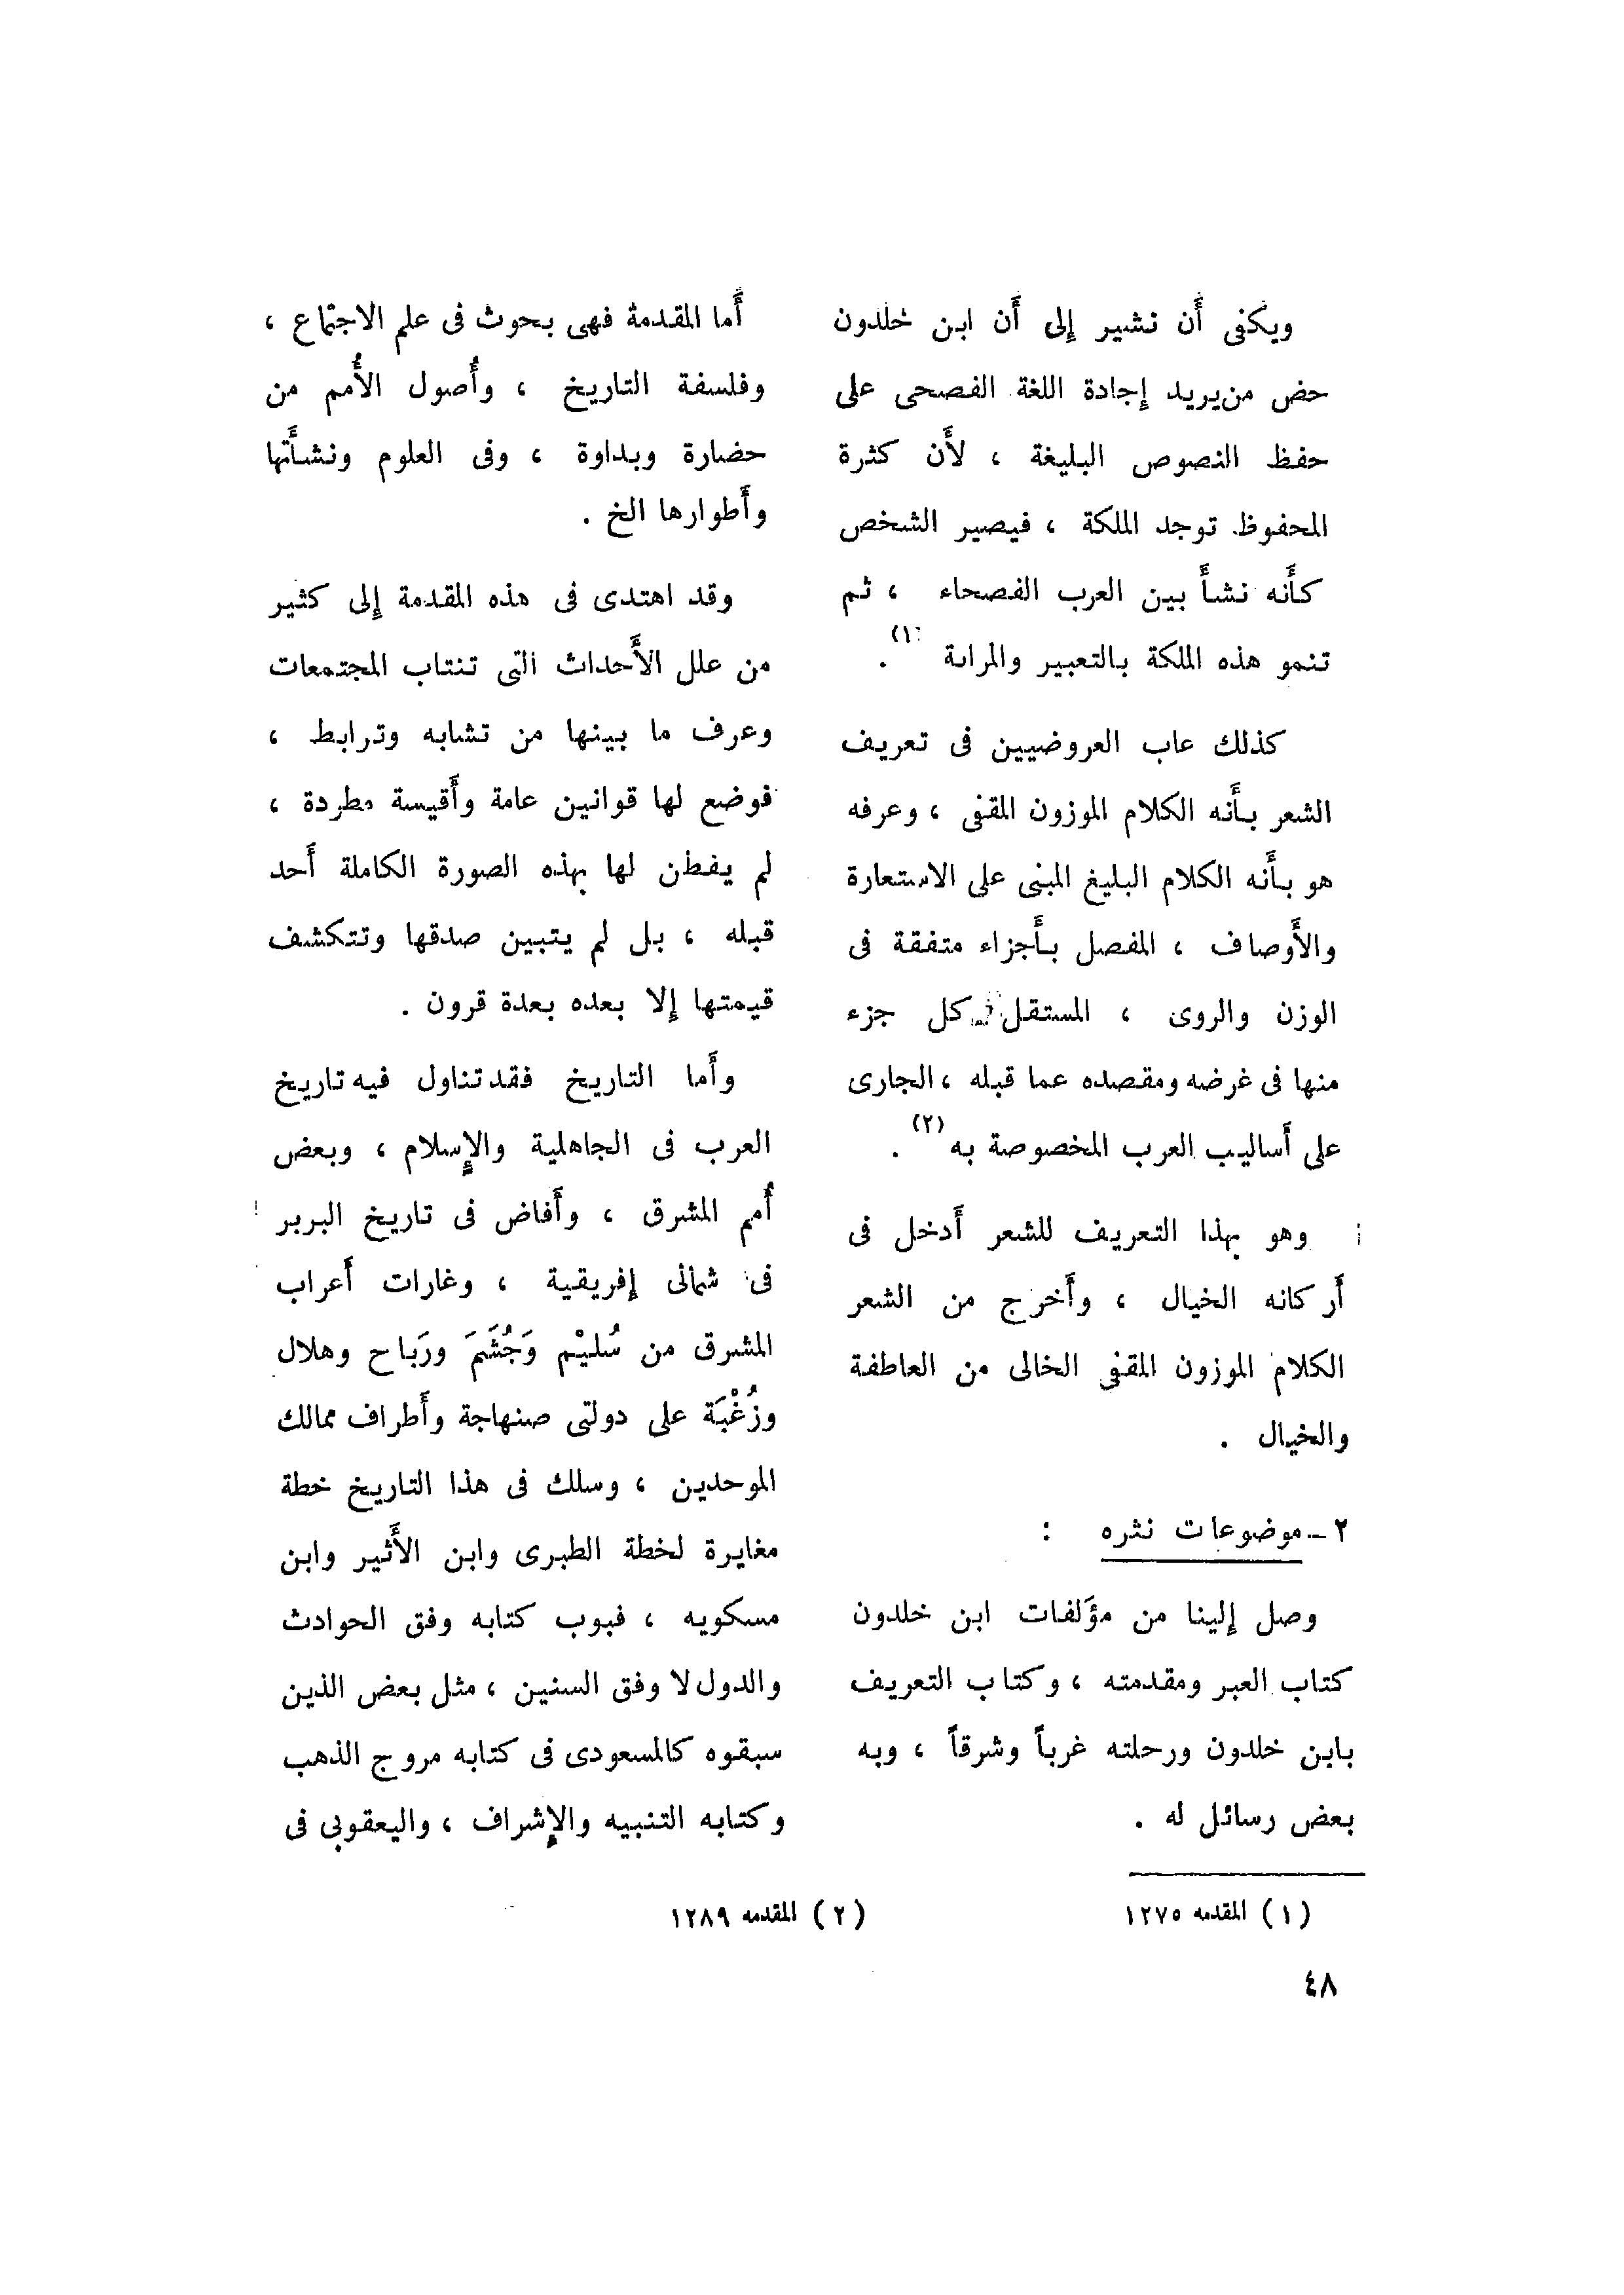 ويكفى أَن نشير إلى أَن ابن خلدون
حض من يريد إجادة اللغة الفصحى على
حفظ النصوص البليغة ، لأَن كثرة
المحفوظ توجد الملكة ، فيصير الشخص
كأَنه نشأَ بين العرب الفصحاء ، ثم
تنمو هذه الملكة بالتعبير والمرانة (١) .
كذلك عاب العروضيين فى تعريف
الشعر بأَنه الكلام الموزون المقفى ، وعرفه
هو بأَنه الكلام البليغ المبنى على الاستعارة
والأَوصاف ، المفصل بأَجزاء متفقة فى
الوزن والروى ، المستقل كل جزء
منها فى غرضه ومقصده عما قبله ، الجارى
على أَساليب العرب المخصوصة به (٢) .
وهو بهذا التعريف للشعر أَدخل فى
أَركانه الخيال ، وأَخرج من الشعر
الكلام الموزون المقفى الخالى من العاطفة
والخيال .
٢ – موضوعات نثره :
وصل إلينا من مؤَلفات ابن خلدون
كتاب العبر ومقدمته ، وكتاب التعريف
بابن خلدون ورحلته غرباً وشرقاً ، وبه
بعض رسائل له .
أَما المقدمة فهى بحوث فى علم الاجتماع ،
وفلسفة التاريخ ، وأُصول الأُمم من
حضارة وبداوة ، وفى العلوم ونشأَتها
وأَطوارها الخ .
وقد اهتدى فى هذه المقدمة إلى كثير
من علل الأَحداث التى تنتاب المجتمعات
وعرف ما بينها من تشابه وترابط ،
فوضع لها قوانين عامة وأَقيسة مطردة ،
لم يفطن لها بهذه الصورة الكاملة أَحد
قبله ، بل لم يتبين صدقها وتتكشف
قيمتها إلا بعده بعدة قرون .
وأَما التاريخ فقد تناول فيه تاريخ
العرب فى الجاهلية والإسلام ، وبعض
أُمم المشرق ، وأَفاض فى تاريخ البربر
فى شمالى إفريقية ، وغارات أَعراب
المشرق من سُليْم وَجُشَمَ ورَباح وهلال
وزُغْبَة على دولتى صنهاجة وأَطراف ممالك
الموحدين ، وسلك فى هذا التاريخ خطة
مغايرة لخطة الطبرى وابن الأَثير وابن
مسكويه ، فبوب كتابه وفق الحوادث
والدول لا وفق السنين ، مثل بعض الذين
سبقوه كالمسعودى فى كتابه مروج الذهب
وكتابه التنبيه والإشراف ، واليعقوبى فى
(١) المقدمه ١٢٧٥
(٢) المقدمه ١٢٨٩
٤٨